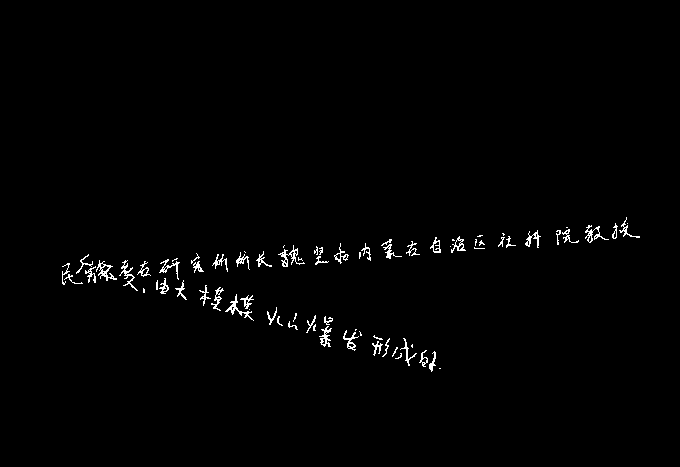 考古研究所所长魏坚和内蒙古自治区社科院教授
,由大规模火山爆发形成的